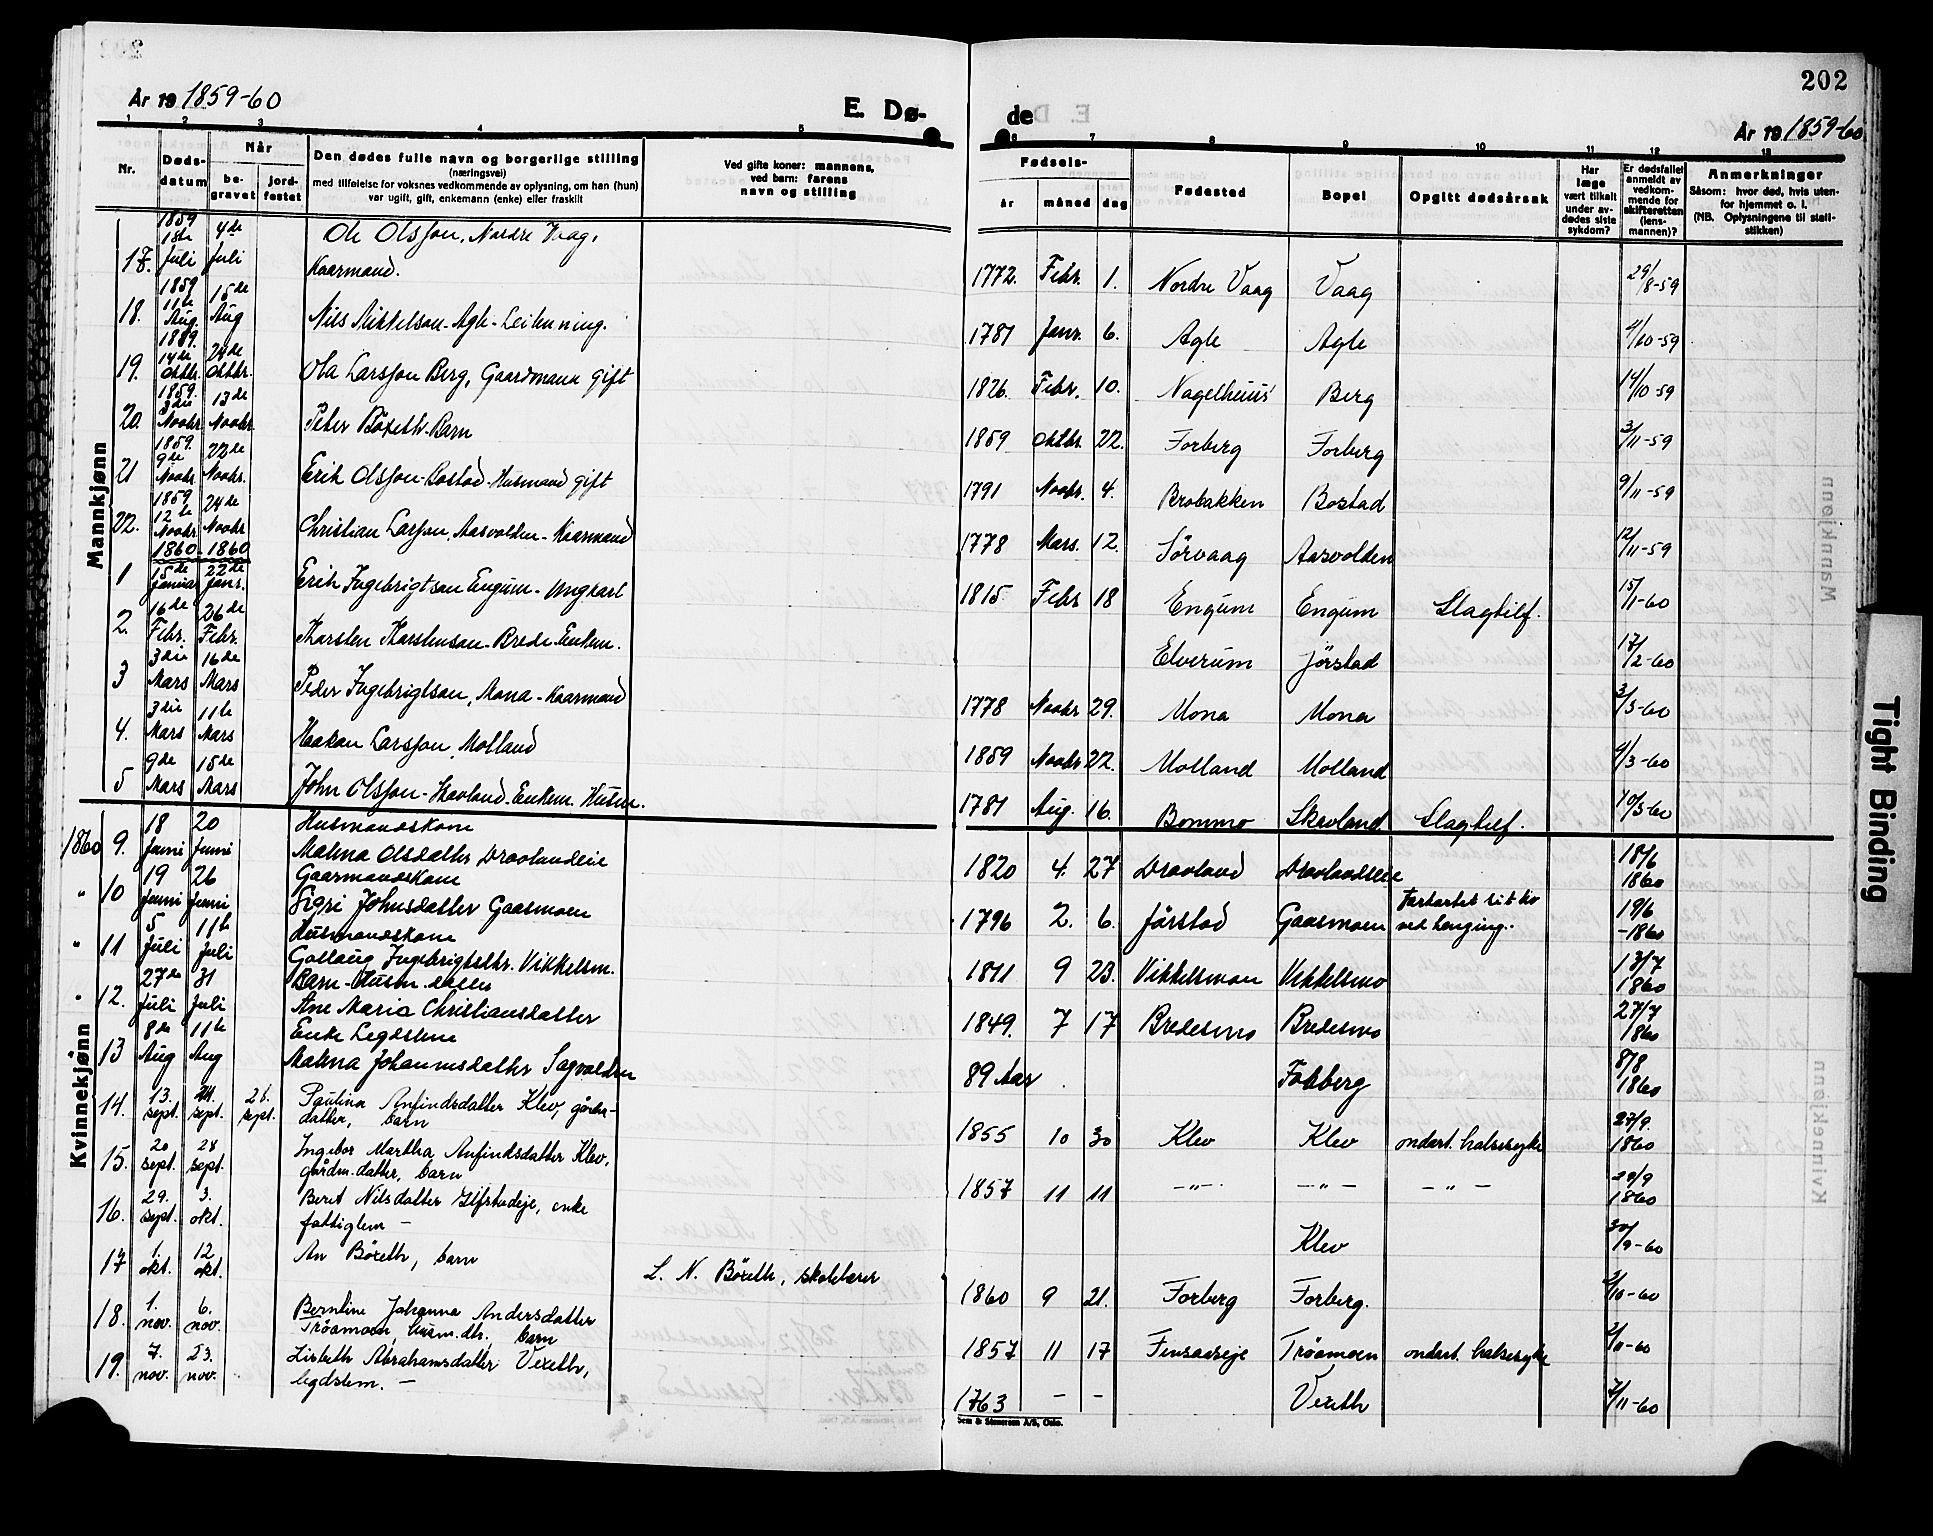 202
År 19 1859-60
E. Dø-
de
År 19 1859-60
1 2 3 4 5 6 7 8 9 10 11 12 13
Nr.
Døds-datum
Når
be-gravet
jord-festet
Den dødes fulle navn og borgerlige stilling
(næringsvei)
med tilføielse for voksnes vedkommende av oplysning, om han (hun)
var ugift, gift, enkemann (enke) eller fraskilt
Ved gifte koner: mannens,
ved barn: farens
navn og stilling
Fødsels-
år måned dag
Fødested
Bopel
Opgitt dødsårsak
Har læge vært tilkalt under av-dødes siste sykdom?
Er dødsfallet anmeldt av vedkom-mende for skifteretten (lens-mannen)?
Anmerkninger
Såsom: hvor død, hvis uten-for hjemmet o. l.
(NB. Oplysningene til stati-stikken)
Mannkjønn
1859 4de Ole Olsson, Nordre Vaag,
17. Juli Juli Kaarmand. 1772. Febr. 1. Nordre Vaag Vaag 29/8-59
1859 15de
18. 11te Aug. Aug Nils Mikkelson-Agle- 1781 Janr. 6. Agle Agle
14de 24de
19. Oktbr. Oktbr. Ola Larsson Berg, Gaardmann gift 1826. Febr. 10. Berg 14/10-59
1859. 3die 13de
20. Novbr Novbr. Peter Böxeth-Barn 1859 Oktbr. 22. Forberg Forberg 3/11-59
1859. 9de 22de
21 Novbr Novbr. Erik Olsson-Bostad-Husmand gift 1791 Novbr. 4. Brobakken Bostad 9/11-59
1859 12te 24de
22. Novbr Novbr Christian Larsson, Aasvolden-Kaarmand 1778 Mars. 12. Sörvaag Aasvolden 12/11-59
1860 1860
15de 22de
1 Januar Janr. Erik Ingebrigtson Engum-Ungkarl 1815 Febr 18 Engum Engum Slagtilf. 15/11-60
16de 26de
2. Febr. Febr. Karsten Karstenson-Brede Enkem. Elverum Jörstad 17/2-60
3die 16de
3 Mars Mars Peder Ingebrigtson, Mona-Kaarmand 1778 Novbr 29. Mona Mona 3/3-60
3die 11te
4. Mars Mars Haakon Larsson, Molland 1859 Novbr 22. Molland Molland 4/3-60
9de 15de
5 Mars Mars John Olsson-Enkem. Husm. 1781 Aug. 16. Bommo Slagtilf. 10/3-60
Kvinnekjønn
18 20 Husmandskone
1860 9. Juni Juni Malena Olsdatter 1820 4. 27 18/6 1860
19 26 Gaarmandskone
" 10 Juni Juni Sigri Johnsdatter Gaasmoen 1796 2. 6. Jörstad Gaasmoen ved henging. 19/6 -1860
5 11te Husmandskone
" 11 Juli Juli Ingebrigtsdtr. Vikkelsm. 1811 9 23. Vikkelsmoen Vikkelsmo 13/7 1860
27de 31 Barn-Husm. datter
" 12. Juli Juli Ane Maria Christiansdatter 1849. 7 17 Bredesmo Bredesmo 27/7 1860
8de 11te Enke Legdslem
13 Aug Aug Malena Johannesdatter Sagvolden 89 Aar Fobberg 8/8 1860
13. 24. 26. Paulina Anfindsdatter Klev, gårdm-
14. sept. sept. sept. datter, barn 1855 10 30 Klev Klev ondart. halsesyke 27/9. 1860
20 28 Ingebor Martha Anfindsdatter Klev,
15. sept. sept. gårdm.datter, barn 1857 11 11 -"- -"- -"- 29/9 1860
29. 3. Beret Nilsdatter, enke
16. sept. okt. fattiglem - Klev 30/9-60
1. 12 An Böxeth, barn
17 okt. okt. L. N. Böxeth, skolelærer 1860 9 21. Forberg Forberg.
1. 6. Berntine Johanna Andersdatter
18. nov. nov. Tröamoen, husm.dtr., barn 1857 11 17 Tröamoen ondart. halsesyke 2/11-60
7. 23. Lisbeth Abrahamsdatter Vexeth,
19. nov. nov. legdslem. - 1763 - - Vexeth 7/11-60
Sem & Stenersen A/S, Oslo.
Tight Binding